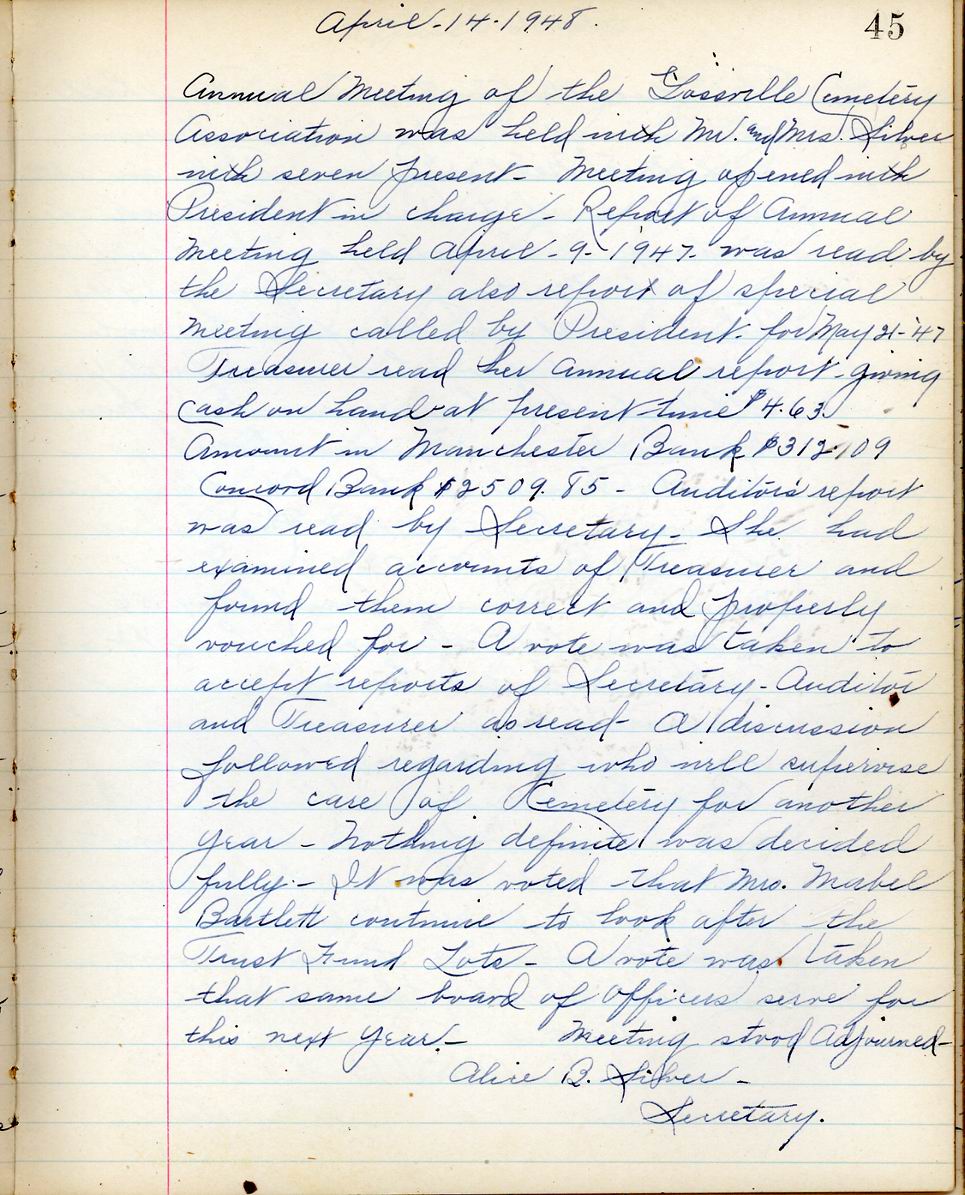 April-14-1948.
45
Annual Meeting of the Gossville Cemetery
Association was held with Mr. and Mrs. Silver
with seven present- Meeting opened with
President in charge- Report of Annual
Meeting held April-9-1947- was read by
the Secretary also report of special
meeting called by President- for May 21-'47
Treasurer read her annual report-giving
cash on hand at present time $4.63.
Amount in Manchester Bank $312.09
Concord Bank $2509.85- Auditors report
was read by Secretary- She had
examined accounts of Treasurer and
found them correct and properly
vouched for- A vote was taken to
accept reports of Secretary-Auditor
and Treasurer as read- A discussion
followed regarding who will supervise
the care of Cemetery for another
year- Nothing definite was decided
fully.- It was voted that Mrs. Mabel
Bartlett continue to look after the
Trust Fund Lots- A vote was taken
that same board of officers serve for
this next year.- Meeting stood Adjourned-
Alice B. Silver-
Secretary.